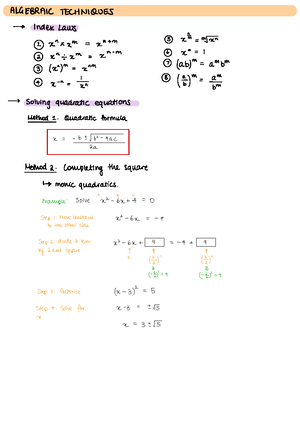 ALGEBRAIC TECHNIQUES
→ Index Laws
① xⁿ × xᵐ = xⁿ⁺ᵐ
② xⁿ ÷ xᵐ = xⁿ⁻ᵐ
③ (xⁿ)ᵐ = xⁿᵐ
④ x⁻ⁿ = 1/xⁿ
⑥ x⁰ = 1
⑦ (ab)ᵐ = aᵐbᵐ
⑧ (a/b)ᵐ = aᵐ/bᵐ
→ Solving quadratic equations
Method 1. Quadratic formula
x = -b ± √(b² - 4ac) / 2a
Method 2. Completing the square
↳ monic quadratics.
Example: Solve x² - 6x + 4 = 0
Step 1: Move constant to the other side
x² - 6x = -4
x² - 6x + 9 = -4 + 9
Step 3: Factorise
(x - 3)² = 5
Step 4: Solve for x
x - 3 = ±√5
x = 3 ± √5